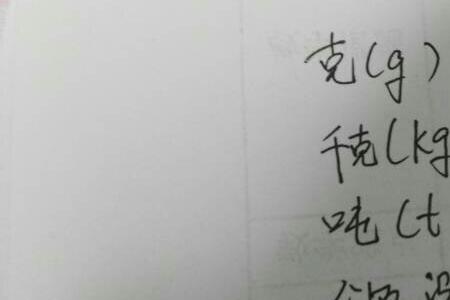 克(g)
千克(kg
吨(t